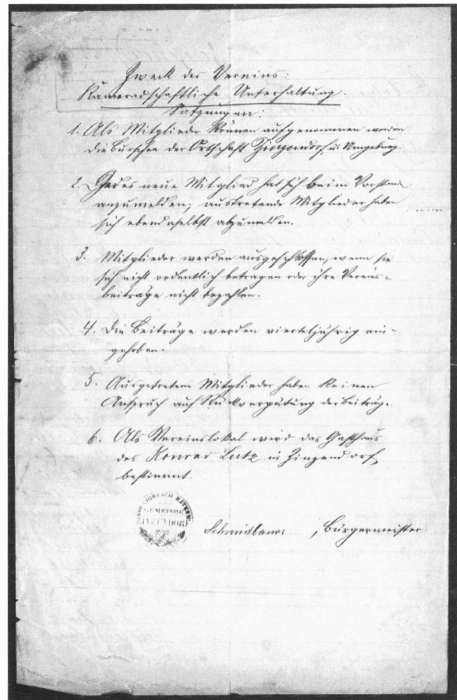 Zweck des Vereins:
Kameradschaftliche Unterhaltung.
Satzungen:
1. Als Mitglieder können aufgenommen werden
die Burschen der Ortschaft Zinzendorf u. Umgebung.
2. Jedes neue Mitglied hat sich beim Vorstand
anzumelden; austretende Mitglieder haben
sich ebendaselbst abzumelden.
3. Mitglieder werden ausgeschlossen, wenn sie
sich nicht ordentlich betragen oder ihre Vereins-
beiträge nicht bezahlen.
4. Die Beiträge werden vierteljährig ein-
gehoben.
5. Ausgetretene Mitglieder haben keinen
Anspruch auf Rückvergütung der Beiträge.
6. Als Vereinslokal wird das Gasthaus
des Konrad Lutz in Zinzendorf
bestimmt.
KÖNIGREICH BAYERN
GEMEINDE
ZINZENDORF
Schmidbauer, Bürgermeister